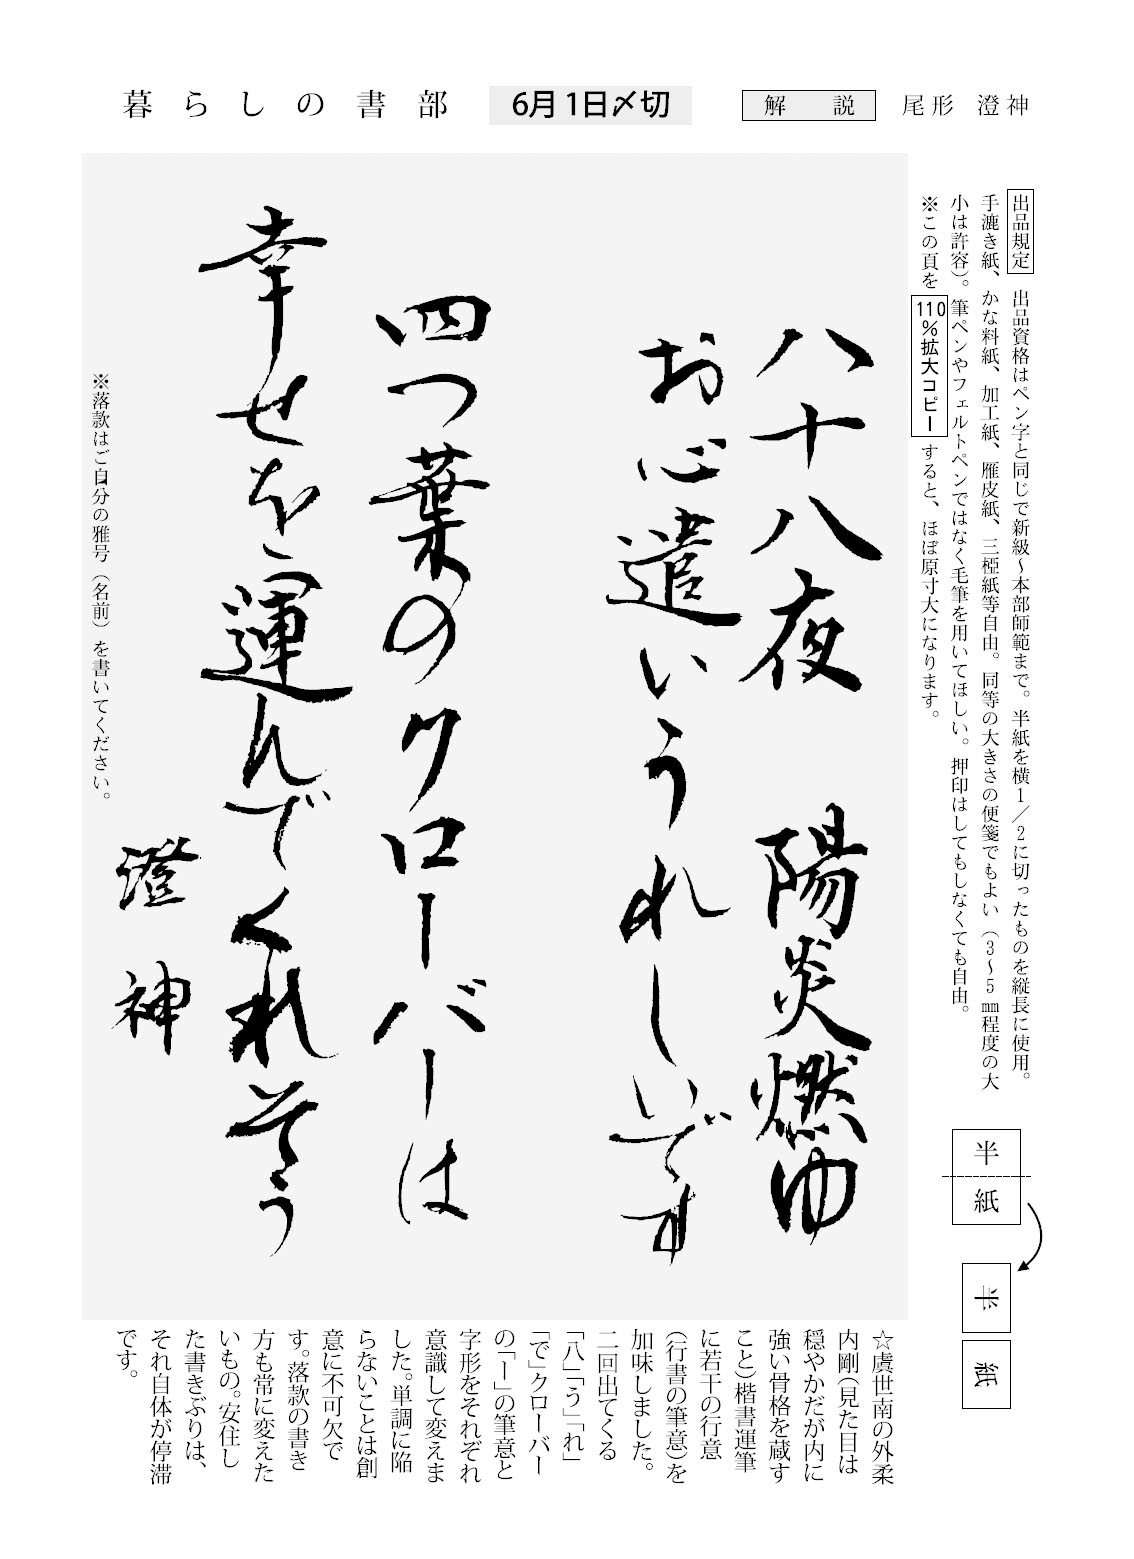 暮らしの書部
6月1日〆切
解説
尾形 澄神
出品規定 出品資格はペン字と同じで新級～本部師範まで。半紙を横1／2に切ったものを縦長に使用。
手漉き紙、かな料紙、加工紙、雁皮紙、三椏紙等自由。同等の大きさの便箋でもよい（3～5㎜程度の大
小は許容）。筆ペンやフェルトペンではなく毛筆を用いてほしい。押印はしてもしなくても自由。
※この頁を110％拡大コピーすると、ほぼ原寸大になります。
半
紙
半
紙
八十八夜 陽炎燃ゆ
お心遣いうれしいです
四つ葉のクローバーは
幸せを運んでくれそう
澄神
※落款はご自分の雅号（名前）を書いてください。
☆虞世南の外柔
内剛（見た目は
穏やかだが内に
強い骨格を蔵す
こと）楷書運筆
に若干の行意
（行書の筆意）を
加味しました。
二回出てくる
「八」「う」「れ」
「で」クローバー
の「ー」の筆意と
字形をそれぞれ
意識して変えま
した。単調に陥
らないことは創
意に不可欠で
す。落款の書き
方も常に変えた
いもの。安住し
た書きぶりは、
それ自体が停滞
です。